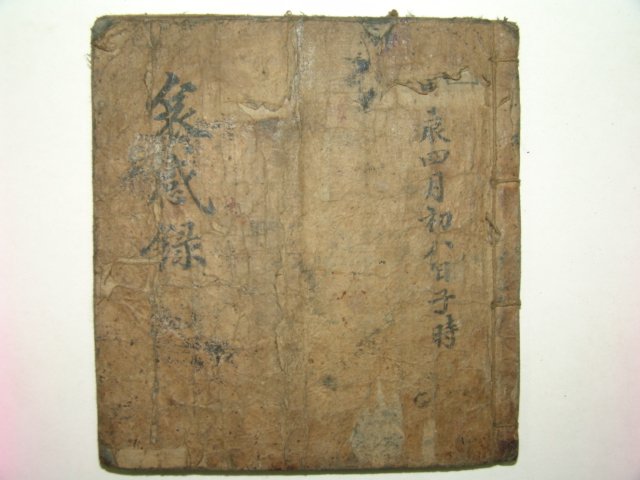 甲辰四月初八日子時
哀感錄